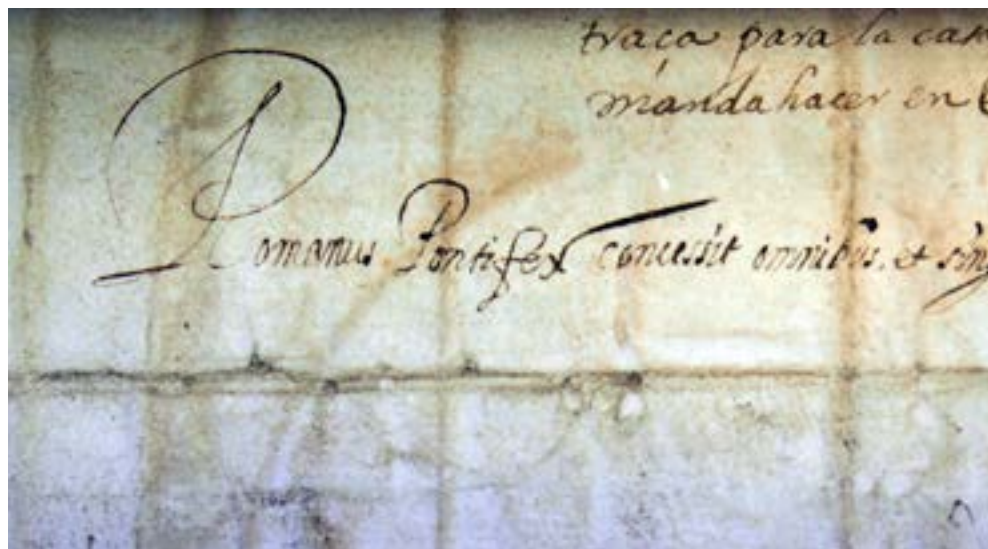 traça para la cas
manda hacer en
Romanus Pontifex concessit omnibus, et sing